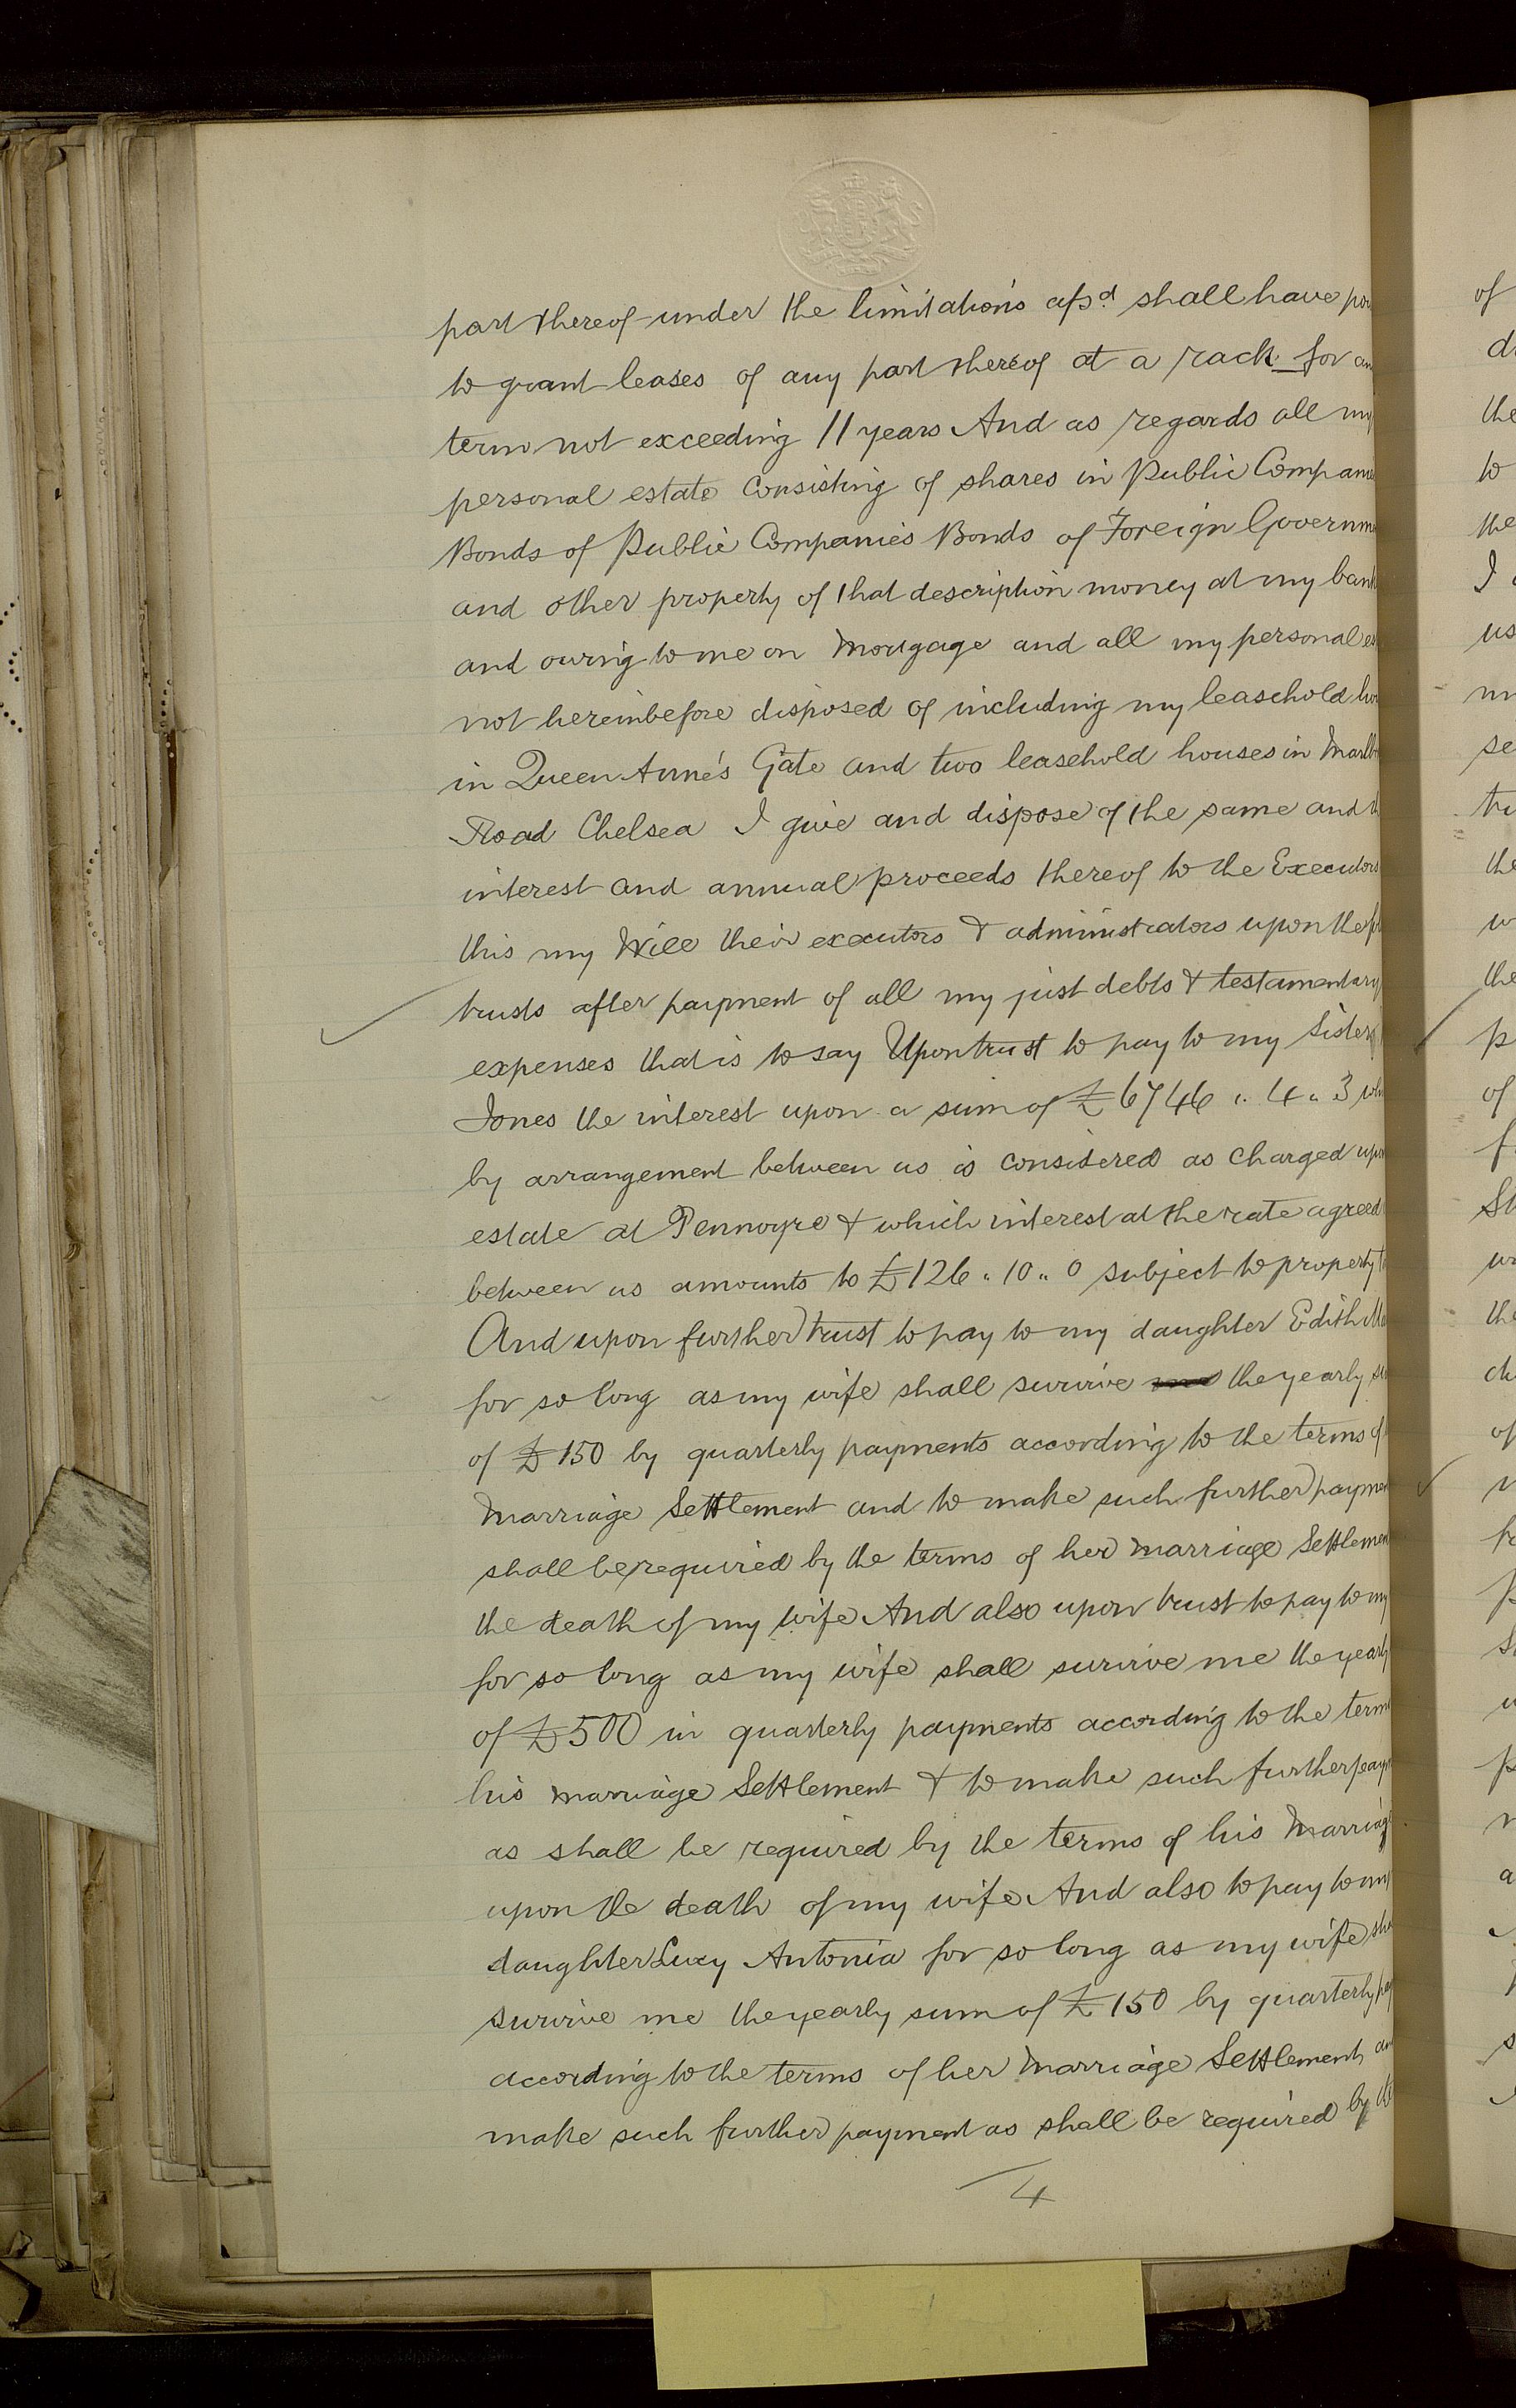 part thereof under the limitations afsd shall have pow
to grant leases of any part thereof at a rack for an
term not exceeding 11 years And as regards all my
personal estate Consisting of shares in Public Companie
Bonds of Public Companies Bonds of Foreign Governme
and other property of that description money at my bank
and owing to me on Mortgage and all my personal es
not hereinbefore disposed of including my leasehold hou
in Queen Anne's Gate and two leasehold houses in Marlb
Road Chelsea I give and dispose of the same and th
interest and annual proceeds thereof to the Executors
this my Will their executors & administrators upon the
trusts after payment of all my just debts & testamentary
expenses that is to say Upon trust to pay to my Sister
Jones the interest upon a sum of £6746 " 4 " 3 whi
by arrangement between us is considered as charged upon
estate at Pennoyre & which interest at the rate agreed
between us amounts to £126 " 10 " 0 subject to property t
And upon further trust to pay to my daughter Edith Ma
for so long as my wife shall survive me the yearly su
of £150 by quarterly payments according to the terms of
Marriage Settlement and to make such further paymen
shall be required by the terms of her Marriage Settlemen
the death of my wife And also upon trust to pay to my
for so long as my wife shall survive me the yearly
of £500 in quarterly payments according to the term
his Marriage Settlement & to make such further paym
as shall be required by the terms of his Marriag
upon the death of my wife And also to pay to my
daughter Lucy Antonia for so long as my wife sha
survive me the yearly sum of £150 by quarterly pay
according to the terms of her Marriage Settlement an
make such further payment as shall be required by the
4
of
the
to
the
I
us
se
the
the
of
the
of